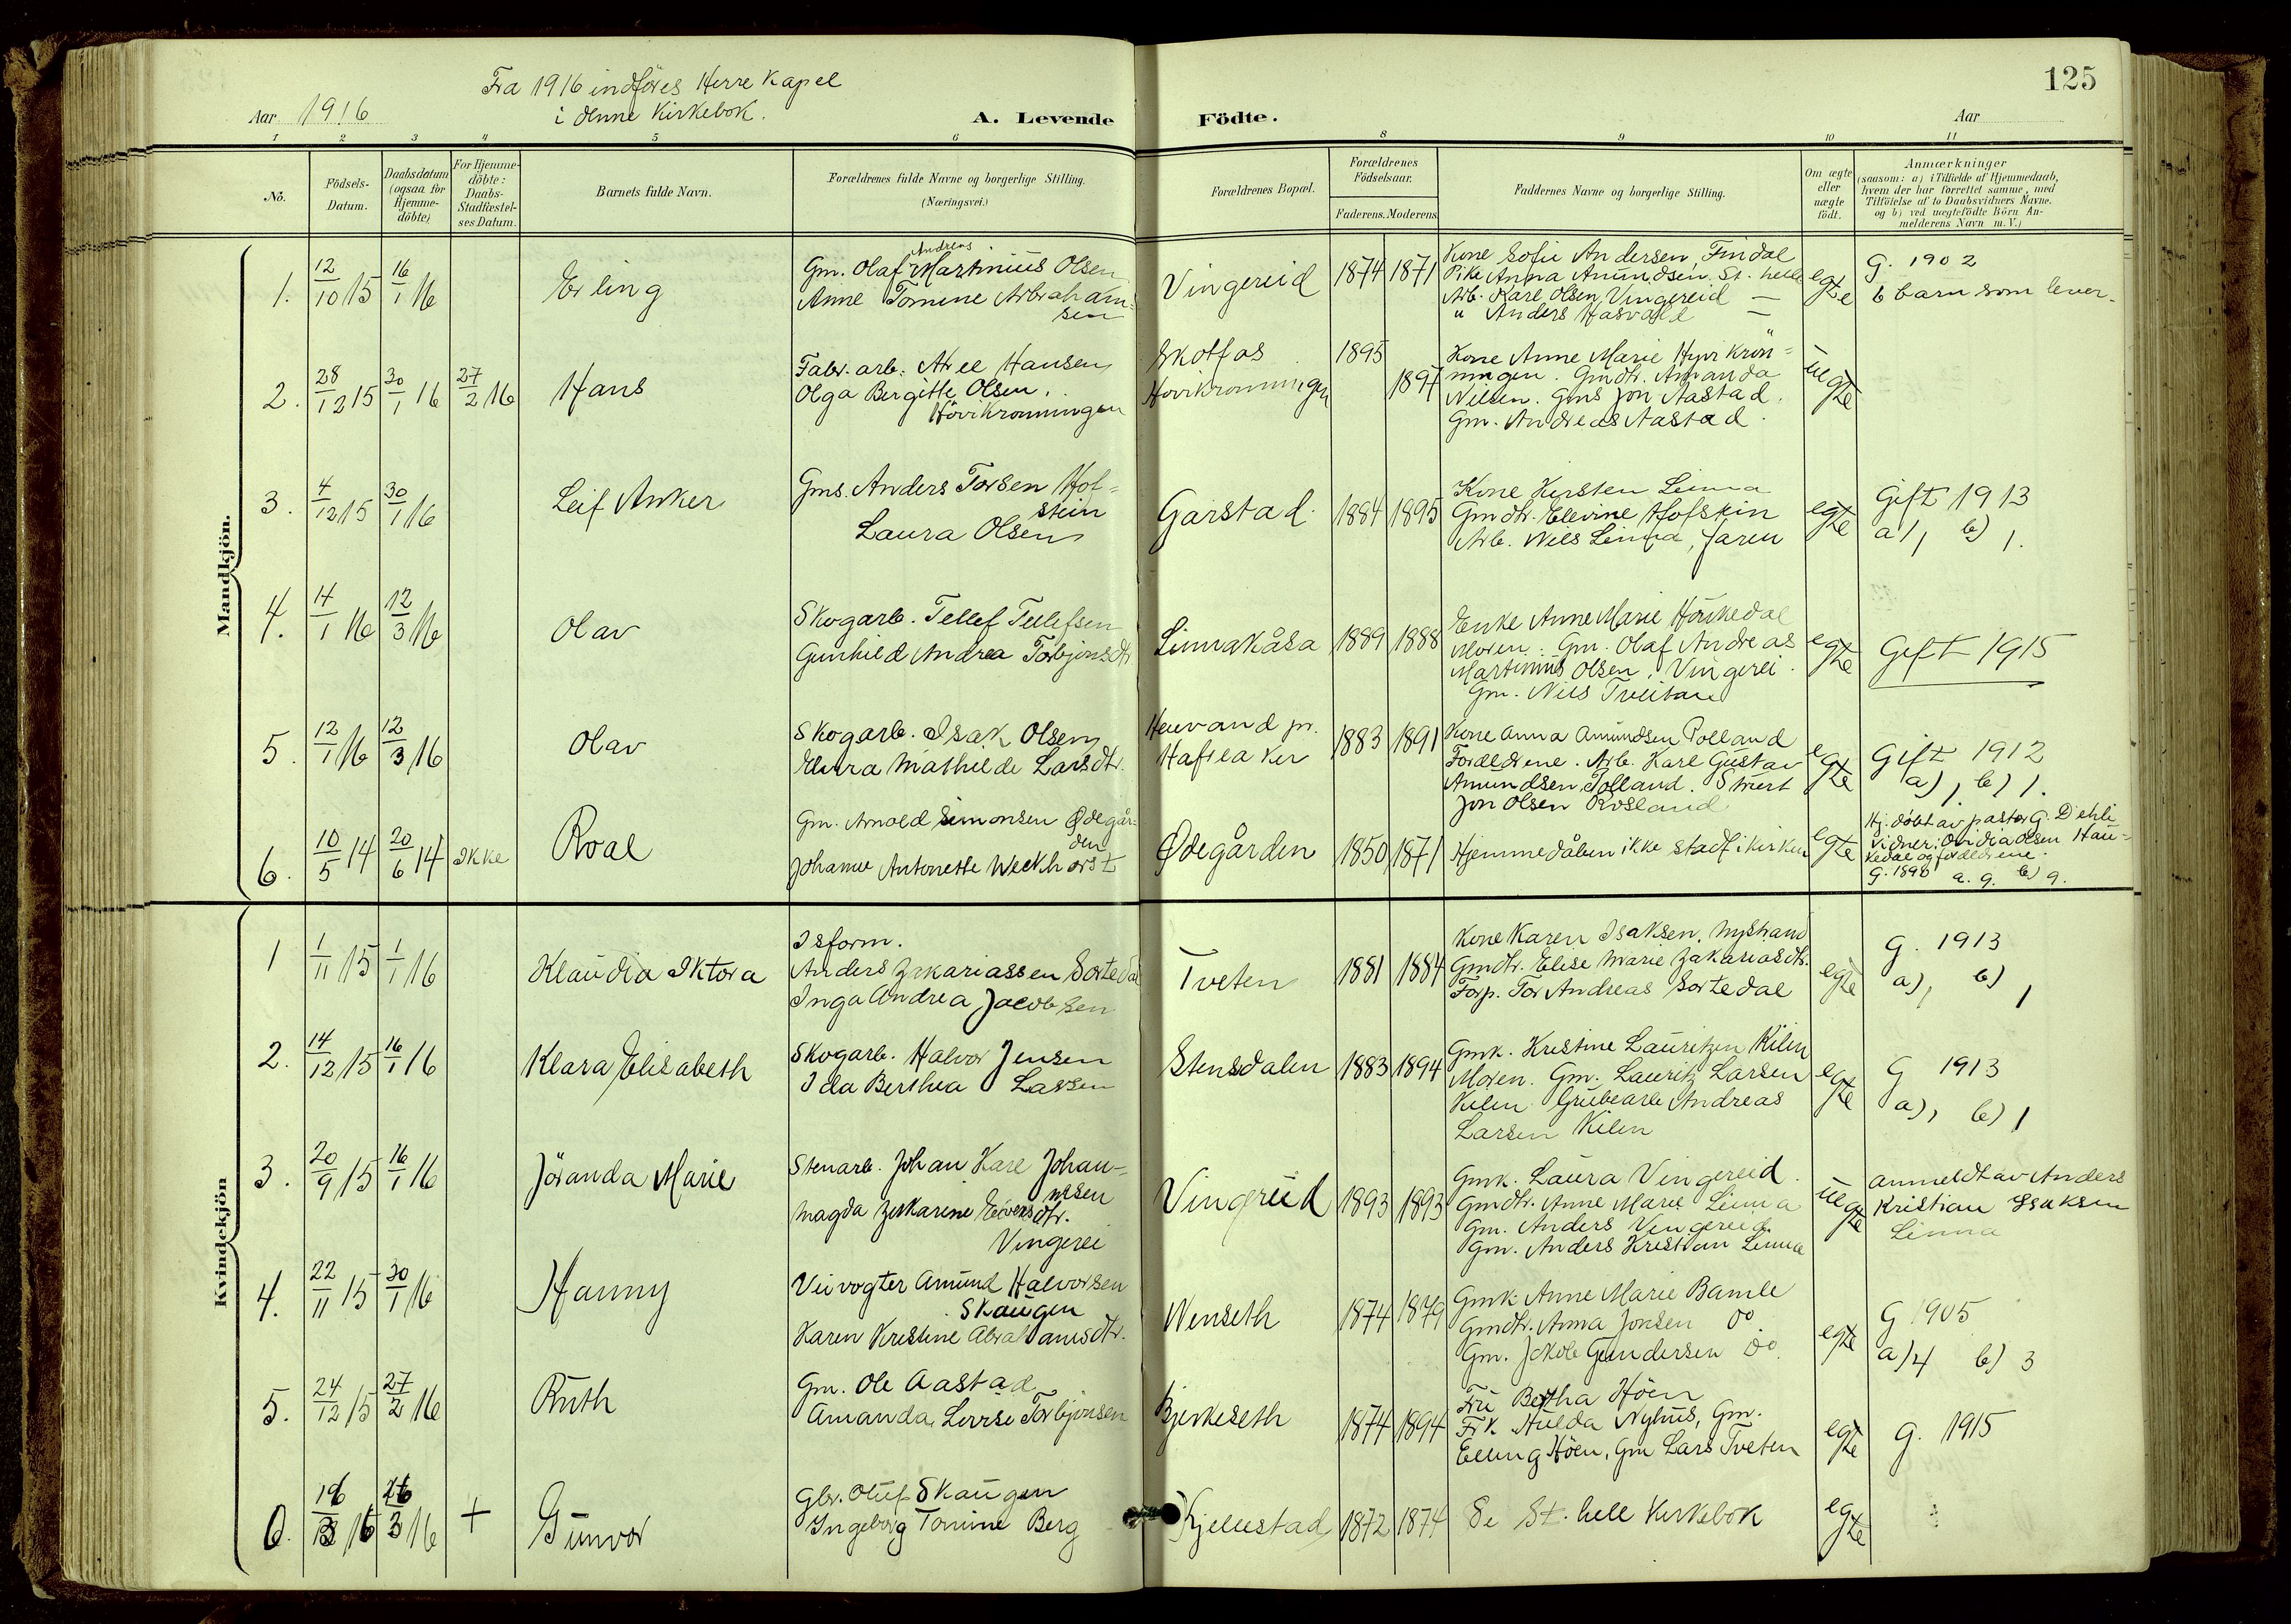 125
Fra 1916 indföres Herre Kapel
i denne Kirkebok.
Aar 1916
A. Levende Födte.
Aar
1 2 3 4 5 6 8 9 10 11
No.
Födsels-
Datum.
Daabsdatum
(ogsaa for
Hjemme-
döbte)
For Hjemme-
döbte:
Daabs-
Stadfæstel-
ses Datum.
Barnets fulde Navn.
Forældrenes fulde Navne og borgerlige Stilling.
(Næringsvei.)
Forældrenes Bopæl.
Forældrenes
Födselsaar.
Faderens. Moderens.
Faddernes Navne og borgerlige Stilling.
Om ægte
eller
uægte
födt.
Anmærkninger
(saasom: a) i Tilfælde af Hjemmedaab,
hvem der har forrettet samme, med
Tilföielse af to Daabsvidners Navne.
og b) ved uægtefödte Börn An-
melderens Navn m. V.)
Mandkjön.
1. 12/10 15 16/1 16
Erling
Andreas
Gm. Olaf Martinius Olsen
Anne Tomine Abraham-
sen
Vingereid
1874 1871
Kone Sofie Andersen, Findal
Pike Anna Amundsen St. helle
Arb. Karl Olsen, Vingereid —
" Anders Hasvald —
egte
G. 1902
6 barn som lever.
2. 28/12 15 30/1 16 27/2 16
Hans
Fabr. arb. Hansen
Olga Bergitte Olsen.
Hövikronningen
Skotfos
Hovikronningen
1895
1897
Kone Anne Marie
ningen. Gmdtr. Amanda
Nilsen. Gms Jon Aastad.
Gm. Andreas Aastad.
uegte
3. 4/12 15 30/1 16
Leif Anker
Gms. Anders Torsen Hof-
stein
Laura Olsen
Garstad.
1884 1895
Kone Kirsten Linna
Gmdtr. Elevine Hofskin
Arb. Nils Linna, Jaren
egte
Gift 1913
a) 1, b) 1.
4. 14/1 16 12/3 16
Olav
Skogarb. Tellef Tellefsen
Gunhild Andrea Torbjørnsdtr
Linnakåsa
1889 1888
Enke Anne Marie Haukedal
Moren. Gm. Olaf Andreas
Martinius Olsen, Vingerei.
Gm. Nils
egte
Gift 1915
5. 12/1 16 12/3 16
Olav
Skogarb. Isak Olsen
Elvira Mathilde Larsdtr.
Heivand pr.
1883 1891
Kone Anna Amundsen Tolland
Foreldrene. Arb. Karl Gustav
Amundsen, Tolland.
Jon Olsen Rosland
egte
Gift 1912
a) 1, b) 1.
6. 10/5 14 20/6 14 Ikke
Roal
Gm. Arnold Simonsen Ødegår-
den
Johanne Antonette Weckhorst
Ødegården
1850 1871
Hjemmedåben ikke stadf i kirken
egte
Hj. døbt av pastor G. Diehli
Vidner: Ovidia Olsen Hau-
kedal og foreldrene.
G. 1898 a. 9. b) 9.
Kvindekjön
1 1/11 15 1/1 16
Klaudia Iktora
Isform.
Anders Zakariassen Sortedal
Inga Andrea Jacobsen
Tveten
1881 1884
Kone Karen Isaksen, Nystrand
Gmdtr. Elise Marie Zakariasdtr.
Forp. Tor Andreas Sortedal
egte
G. 1913
a) 1 b) 1
2. 14/12 15 16/1 16
Klara Elisabeth
Skogarb. Halvor Jensen
Ida Berthea Lassen
Stensdalen
1883 1894
Gmk. Kristine Lauritzen Kilen
Moren. Gm. Lauritz Larsen
Kilen Grubearb Andreas
Larsen Kilen
egte
G 1913
a) 1 b) 1
3. 20/9 15 16/1 16
Jöranda Marie
Stenarb. Johan Karl Johan-
nsen
Magda Zakarine Eivensdtr.
Vingerei
Vingereid
1893 1893
Gmk. Laura Vingereid.
Gmdtr. Anne Marie Linna
Gm. Anders Vingereid
Gm. Anders Kristian Linna
uegte
anmeldt av Anders
Kristian Isaksen
Linna
4. 22/11 15 30/1 16
Hanny
Veivogter Amund Halvorsen
Skaugen
Karen Kristine Abrahamsdtr.
Wenseth
1874 1879
Gmk. Anne Marie Bamle
Gmdtr. Anna Jonsen do
Gm. Jakob Gundersen do.
egte
G 1905
a) 4 b) 3
5. 24/12 15 27/2 16
Ruth
Gm. Ole Aastad
Amanda, Torbjørnsen
Bjerkeseth
1874 1894
Fru Bertha Höen
Frk. Hulda Nyhus, Gm.
Elling Höen, Gm Lars Tveten
egte
G. 1915
6. 16 26/3 16 +
Gunvor
Gbr. Oluf Skaugen
Ingeborg Tomine Berg
Kjellestad
1872 1874
Se St. helle Kirkebok
egte